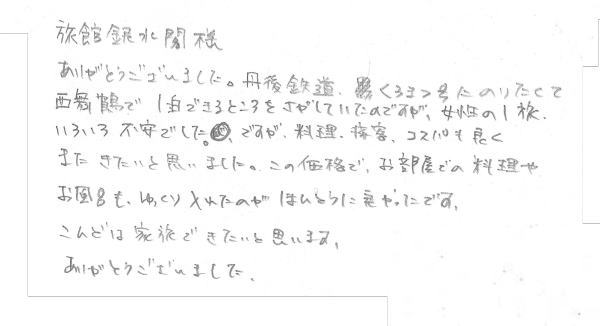 旅館銀水閣様
ありがとうございました。丹後鉄道、くろまつ号にのりたくて
西舞鶴で1泊できるところをさがしていたのですが、女性の1人旅、
いろいろ不安でした。ですが、料理、接客、コスパも良く
またきたいと思いました。この価格で、お部屋での料理や
お風呂も、ゆっくり入れたのがほんとうに良かったです。
こんどは家族できたいと思います。
ありがとうございました。